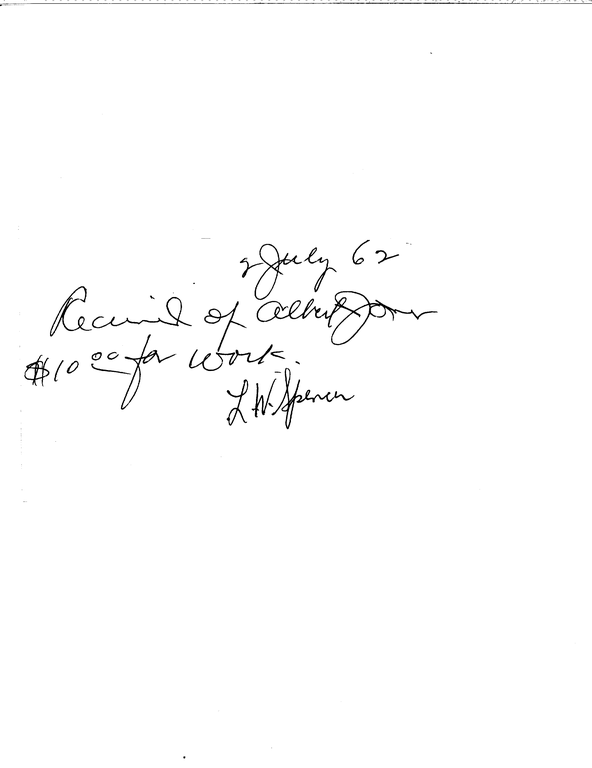 2 July 62
Received of Albert Jones
$10.00 for work.
L W. Spencer